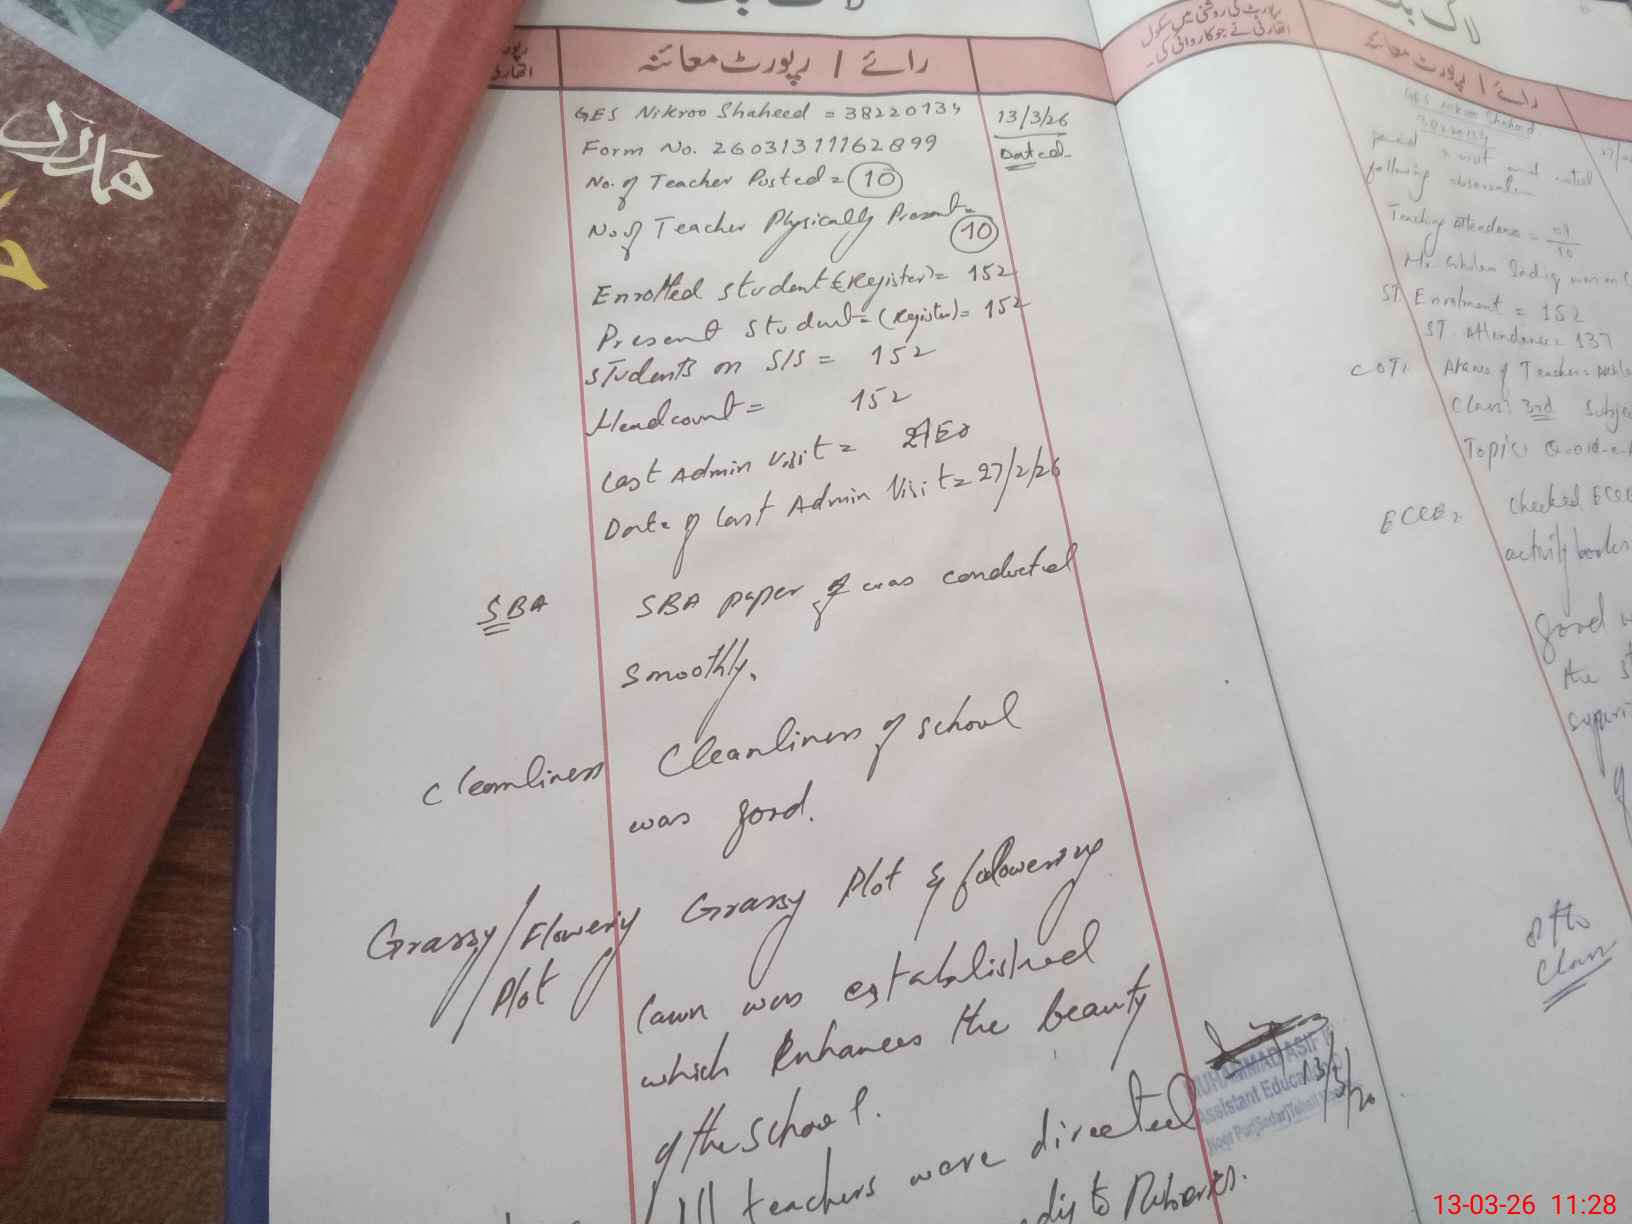 لاگ بک
رائے / رپورٹ معائنہ
GES Nikroo Shaheed = 38220134
13/3/26
Dated
Form No. 26031311162899
No. of Teacher Posted = 10
No of Teacher Physically Present =
10
Enrolled student (Register) = 152
Present student = (Register) = 152
Students on SIS = 152
Headcount = 152
Last Admin Visit = AEO
Date of Last Admin Visit = 27/2/26
SBA
SBA paper of was conducted
smoothly.
Cleanliness
Cleanliness of school
was good.
Grassy/Flowery
Plot
Grassy Plot & followering
lawn was established
which Enhances the beauty
of the school.
teachers were directed
to Rubrics.
MUHAMMAD ASIF
Assistant Educa
Noor Pur(Sadar)Tehsil
13/3/26
رپورٹ کی روشنی میں سکول
اتھارٹی نے جو کاروائی کی۔
لاگ بک
رائے / رپورٹ معائنہ
GES Nikroo Shaheed
38220134
paid a visit and noted
following observation
Teaching Attendance = 09/10
ST. Enrolment = 152
ST. Attendance = 137
COT:
Name of Teacher =
Class: 3rd
Topic:
ECCE
Checked ECCE
activity books
good
the
of the
Class
ھمارا
13-03-26 11:28